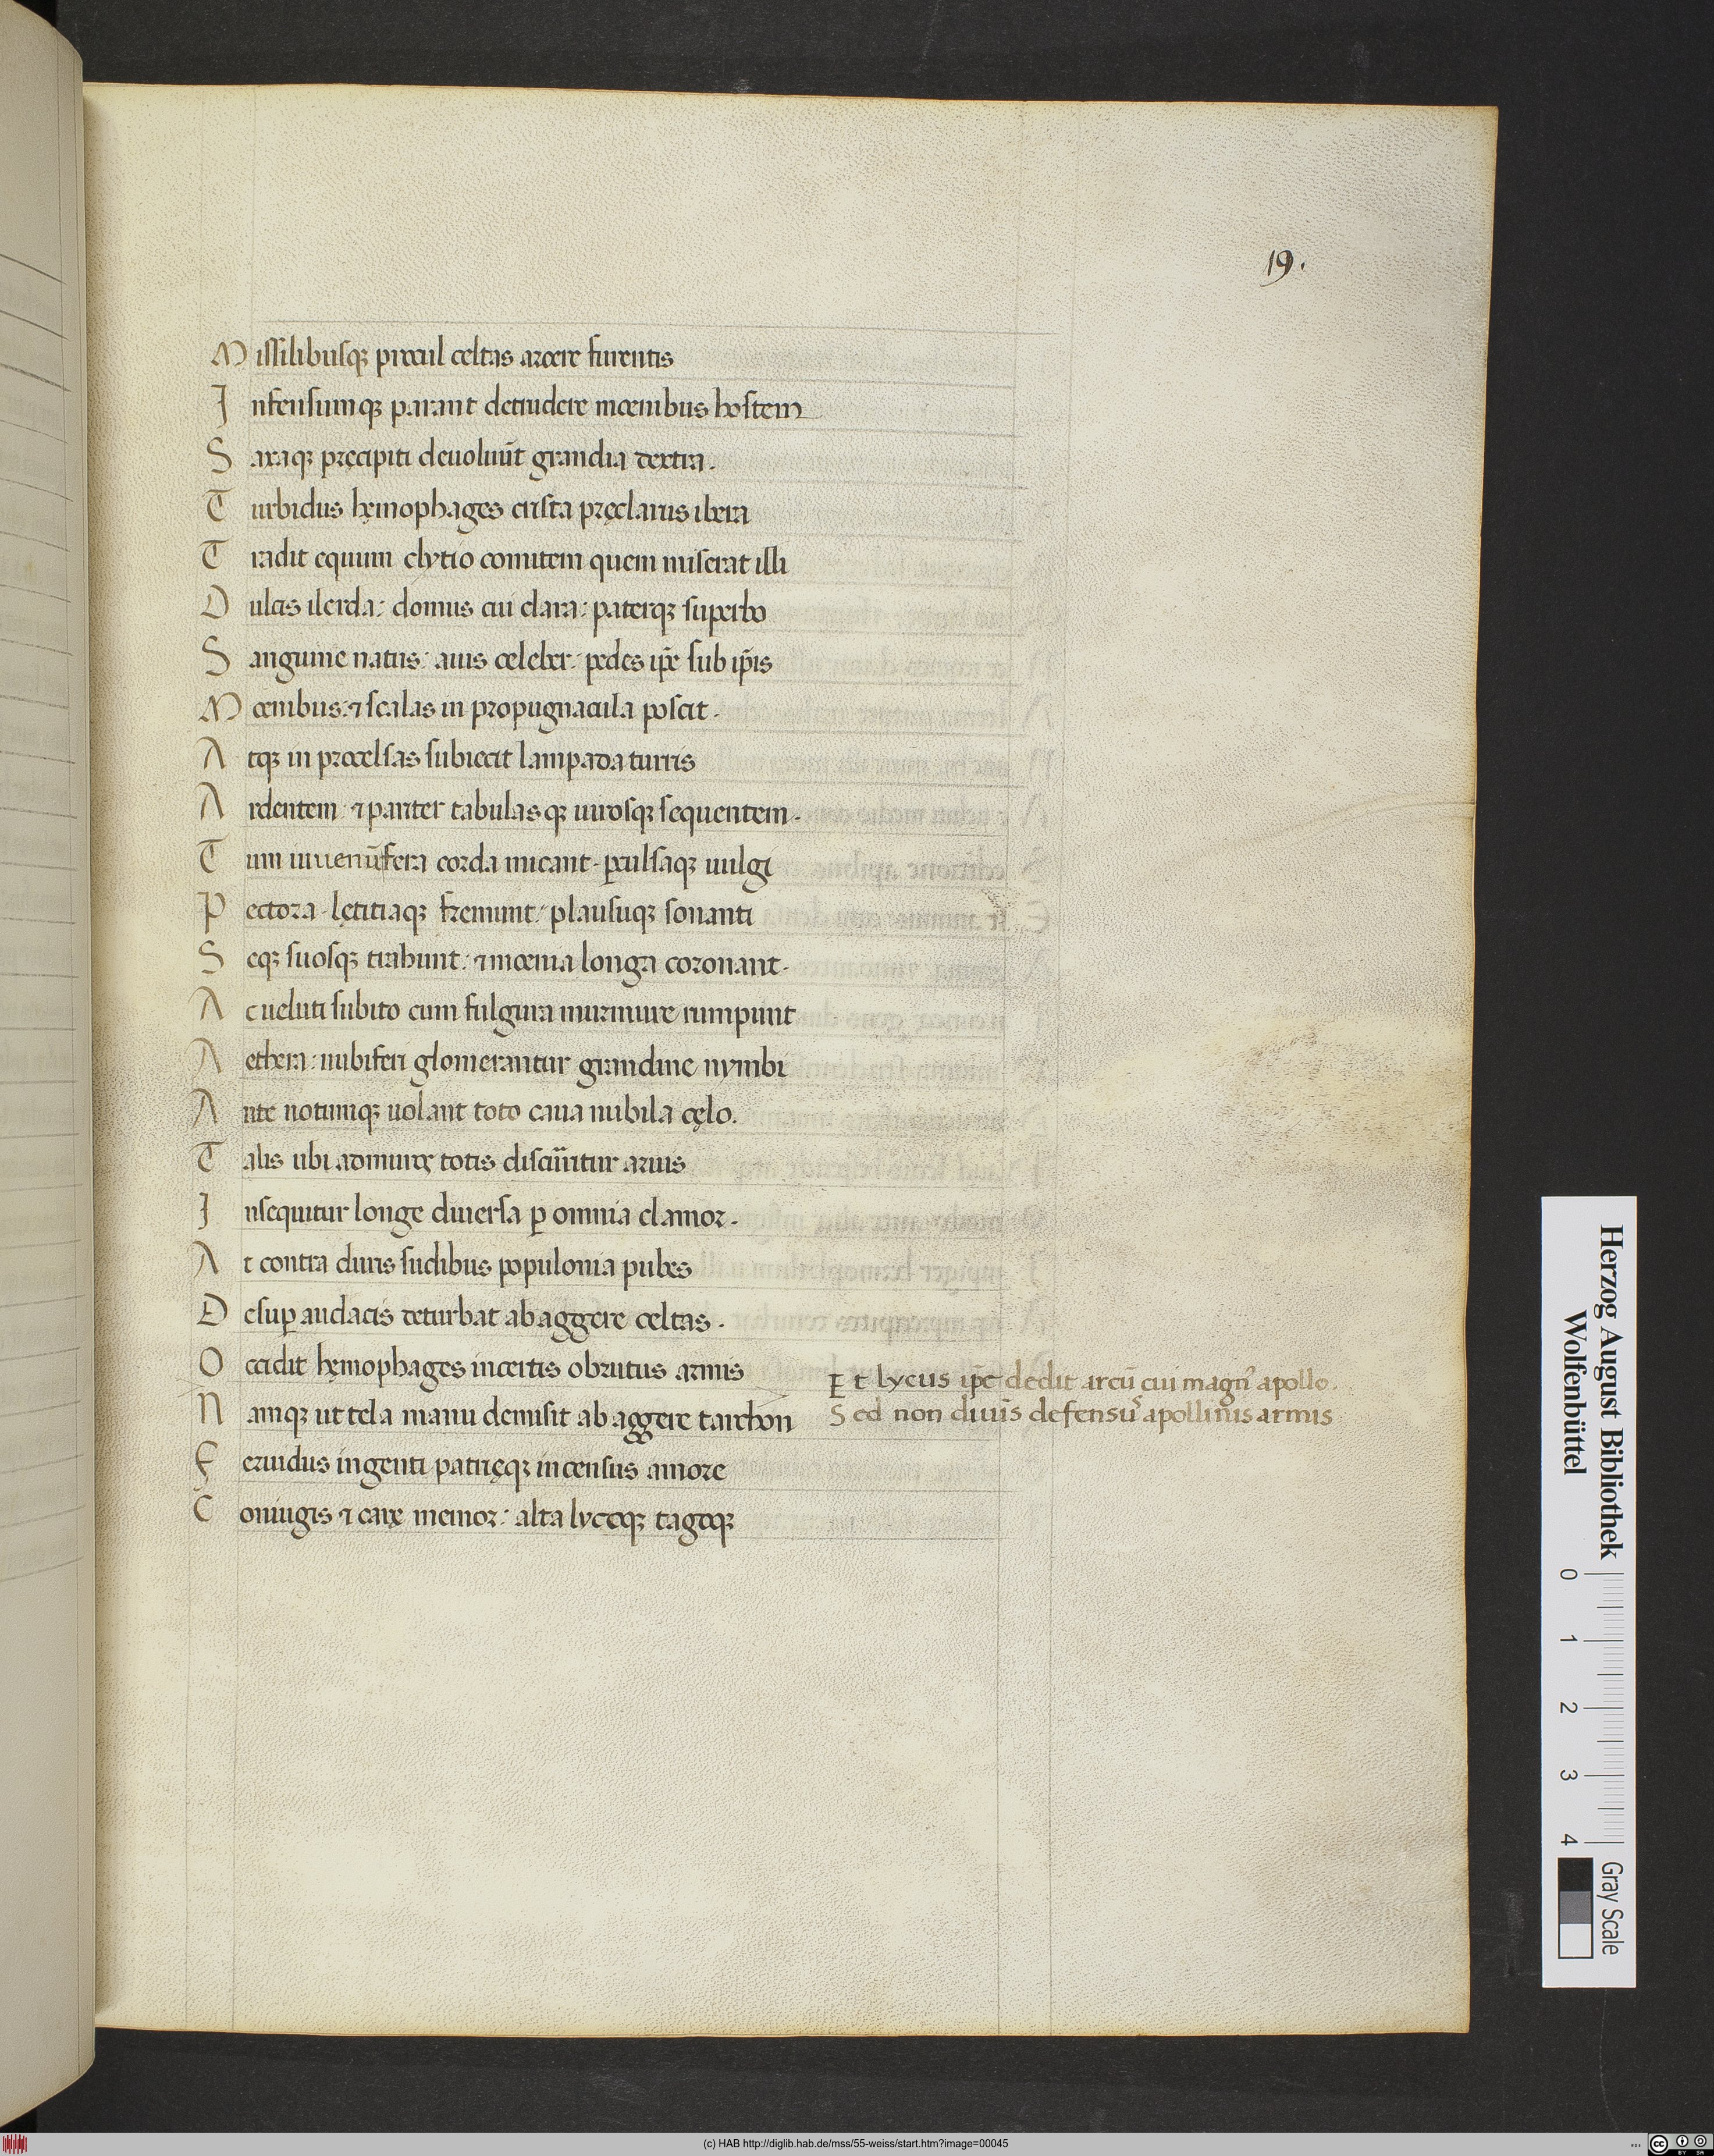 19.
Missilibusq; procul celtas arcere furentis
Infensumq; parant detrudere mœnibus hostem
Saxaq; pręcipiti deuoluūt grandia dextra.
Turbidus hęmophages crista pręclarus ibera
Tradit equum clytio comitem quem miserat illi
Dulcis ilerda: domus cui clara: paterq; superbo
Sanguine natus: auis celeber: pedes ip̄e sub ip̄is
Mœnibus: ⁊ scalas in propugnacula poscit.
Atq; in procelsas subiecit lampada turris
Ardentem: ⁊ pariter tabulasq; uirosq; sequentem.
Tum iuuenū fera corda micant. ꝑculsaq; uulgi
Pectora. lętitiaq; fremunt: plausuq; sonanti
Seq; suosq; trahunt: ⁊ mœnia longa coronant.
Ac ueluti subito cum fulgura murmure rumpunt
Aethera: nubiferi glomerantur grandine nymbi
Ante notumq; uolant toto caua nubila cęlo.
Talis ubi admurę totis discūritur aruis
Insequitur longe diuersa ꝑ omnia clamor.
At contra duris sudibus populonia pubes
Desuꝑ audacis deturbat ab aggere celtas.
Occidit hęmophages incertis obrutus armis
Et lycus ip̄e dedit arcū cui magn᾽ apollo.
Sed non diuis defensu᾽ apollinis armis
Namq; ut tela manu demisit ab aggere tarchon
Feruidus ingenti patrięq; incensus amore
Coniugis ⁊ carę memor: alta lyceq; tageq;
Herzog August Bibliothek
Wolfenbüttel
0 1 2 3 4
Gray Scale
(c) HAB http://diglib.hab.de/mss/55-weiss/start.htm?image=00045